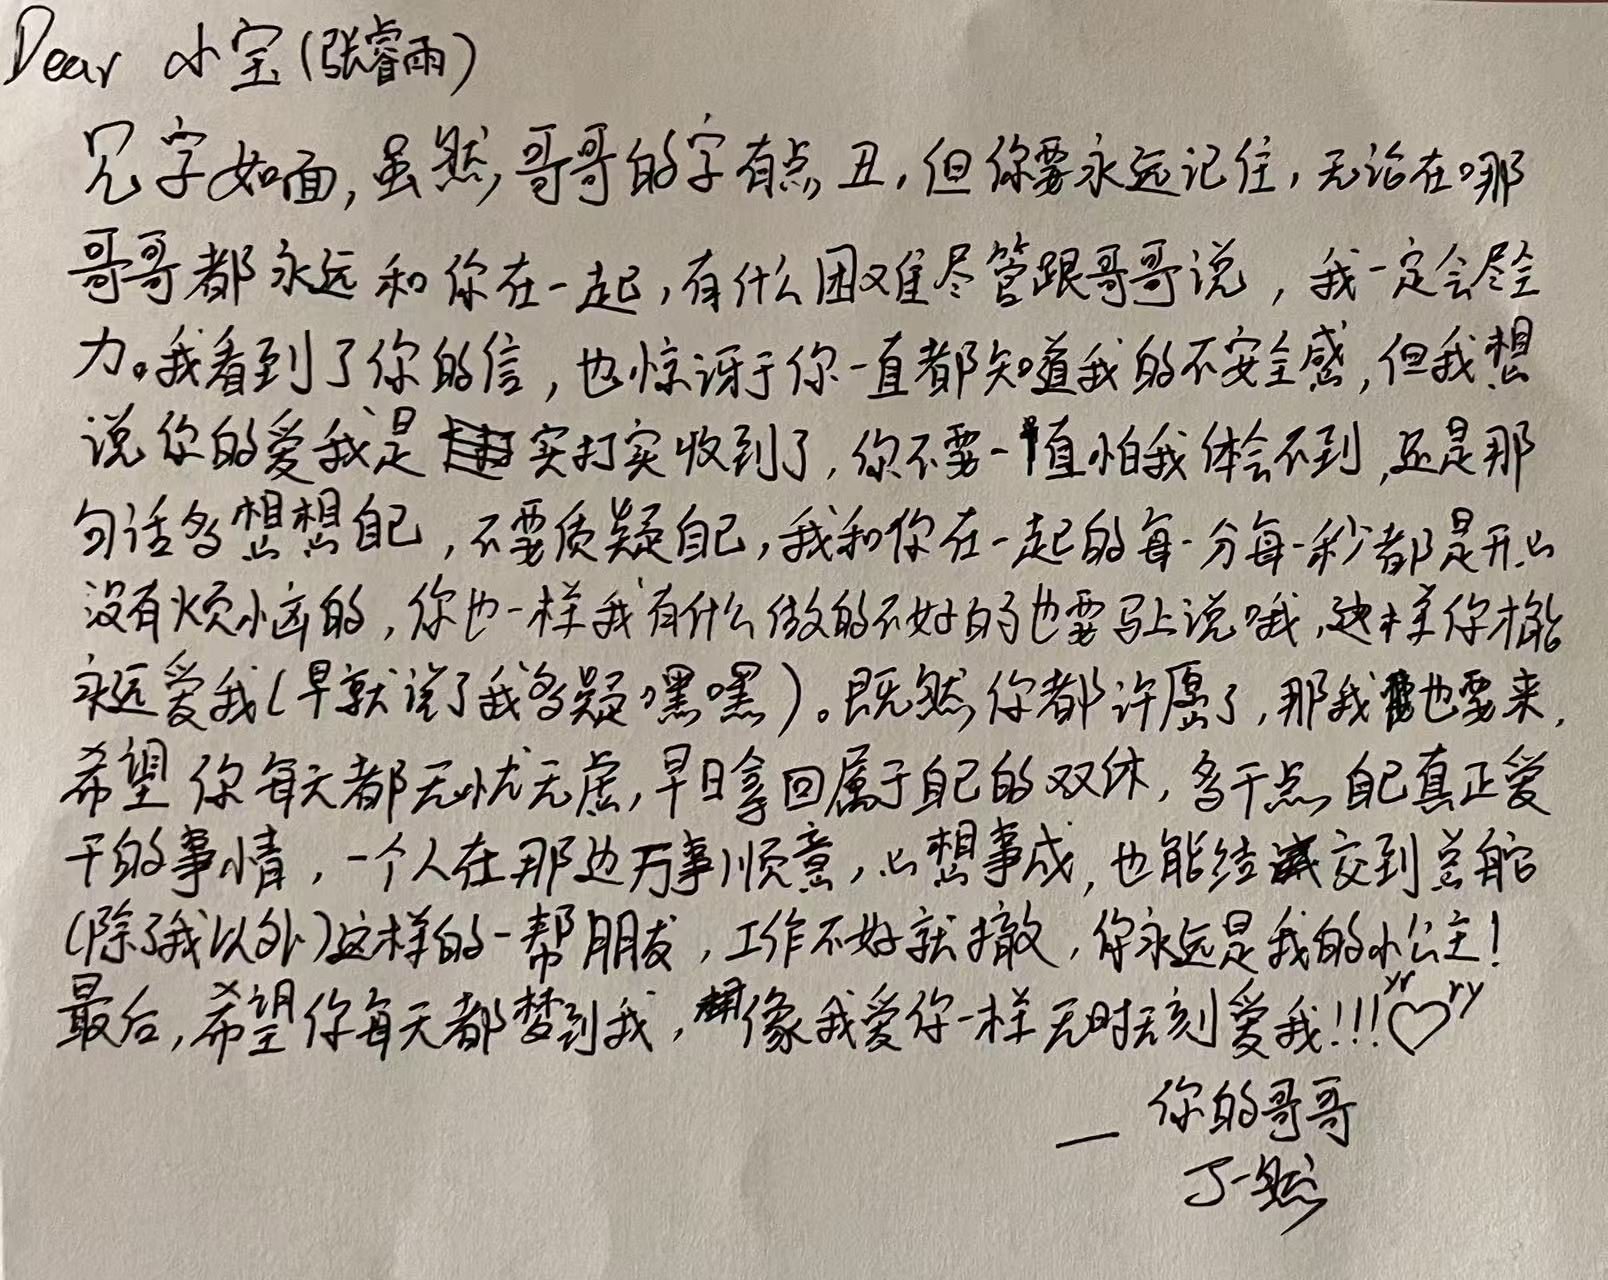 Dear 小宝(张睿雨)
见字如面,虽然哥哥的字有点丑,但你要永远记住,无论在哪
哥哥都永远和你在一起,有什么困难尽管跟哥哥说,我一定会尽全
力。我看到了你的信,也惊讶于你一直都知道我的不安全感,但我想
说你的爱我是实打实收到了,你不要一直怕我体会不到,还是那
句话多想想自己,不要质疑自己,我和你在一起的每一分每一秒都是开心
没有烦恼的,你也一样我有什么做的不好的也要马上说哦,这样你才能
永远爱我(早就说了我多疑嘿嘿)。既然你都许愿了,那我也要来,
希望你每天都无忧无虑,早日拿回属于自己的双休,多干点自己真正爱
干的事情,一个人在那边万事顺意,心想事成,也能结交到
(除了我以外)这样的一帮朋友,工作不好就撤,你永远是我的小公主!
最后,希望你每天都梦到我,像我爱你一样无时无刻爱我!!!yr♡ry
— 你的哥哥
丁一然